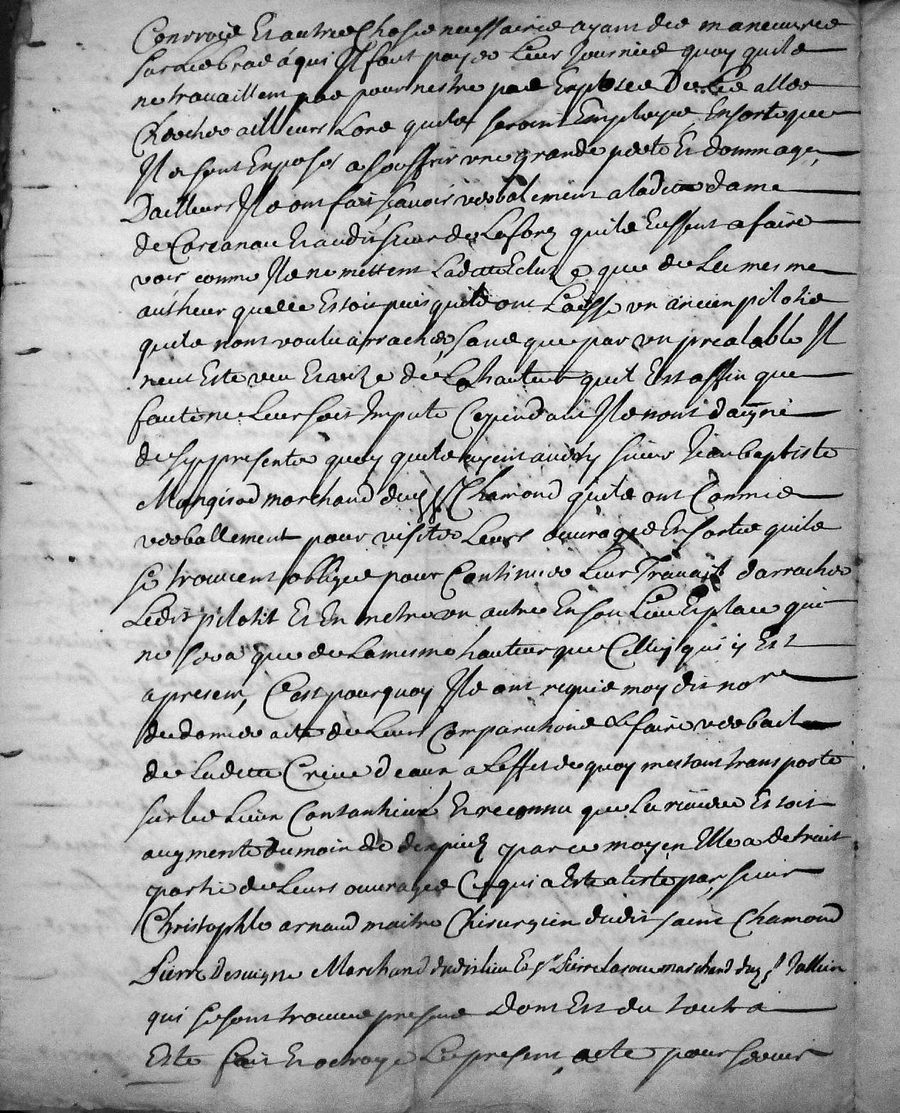 Convoié Et autre Chose necessaire ayant des maneuvre
sur les bras a qui Il faut payer Leur Journée quoy quils
ne travaillent pas pour nestre pas Exposes De Les aller
Chercher ailleurs Lors quils seront Employe Ensorte que
Ils sont Exposes a souffrir une grande perte Et dommage,
Dailleurs Ils ont fait scavoir verbalement a ladite dame
de Et audit sieur de quils Eussent a faire
voir comme Ils ne mettent Ladite Ecluze que de La mesme
autheur quelle Estoit puis quils ont Laissé un ancien pilotis
quils nont voulu arracher sans que par un prealable Il
neut Esté veu Et de La hauteur quil Est affin que
faute ne Leur soit Imputé Cependant Ils nont daigné
de sy presenter quoy quils ayent sieur Jean baptiste
marchand dud St Chamond quils ont Commis
verballement pour visiter Leurs ouvrages Ensorte quils
se trouvent obligé pour Continuer Leur Travail darracher
Ledit pilotit Et En metre un autre En son Lieu Et place qui
ne sera que de La mesme hauteur que Celluy qui y Est
a present, C'est pourquoy Ils ont requis moy dit nore
de donner acte de Leurs Comparution & faire verbail
de Ladite Creüe deaux, a Leffet de quoy mestant transporté
sur les Lieux Contantieux Et reconnu que La riviere Estoit
augmenté du moin de pied par ce moyen Elle a detruit
partie de Leurs ouvrages Ce qui a Esté atesté par, sieur
Christophle arnaud maitre Chirurgien dudit saint Chamond
Pierre Marchand dudit lieu Et sr Pierre marchand dud St Jullien
qui se sont trouvé presents Dont Et du tout a
Esté fait Et octroyé Le present acte pour servir